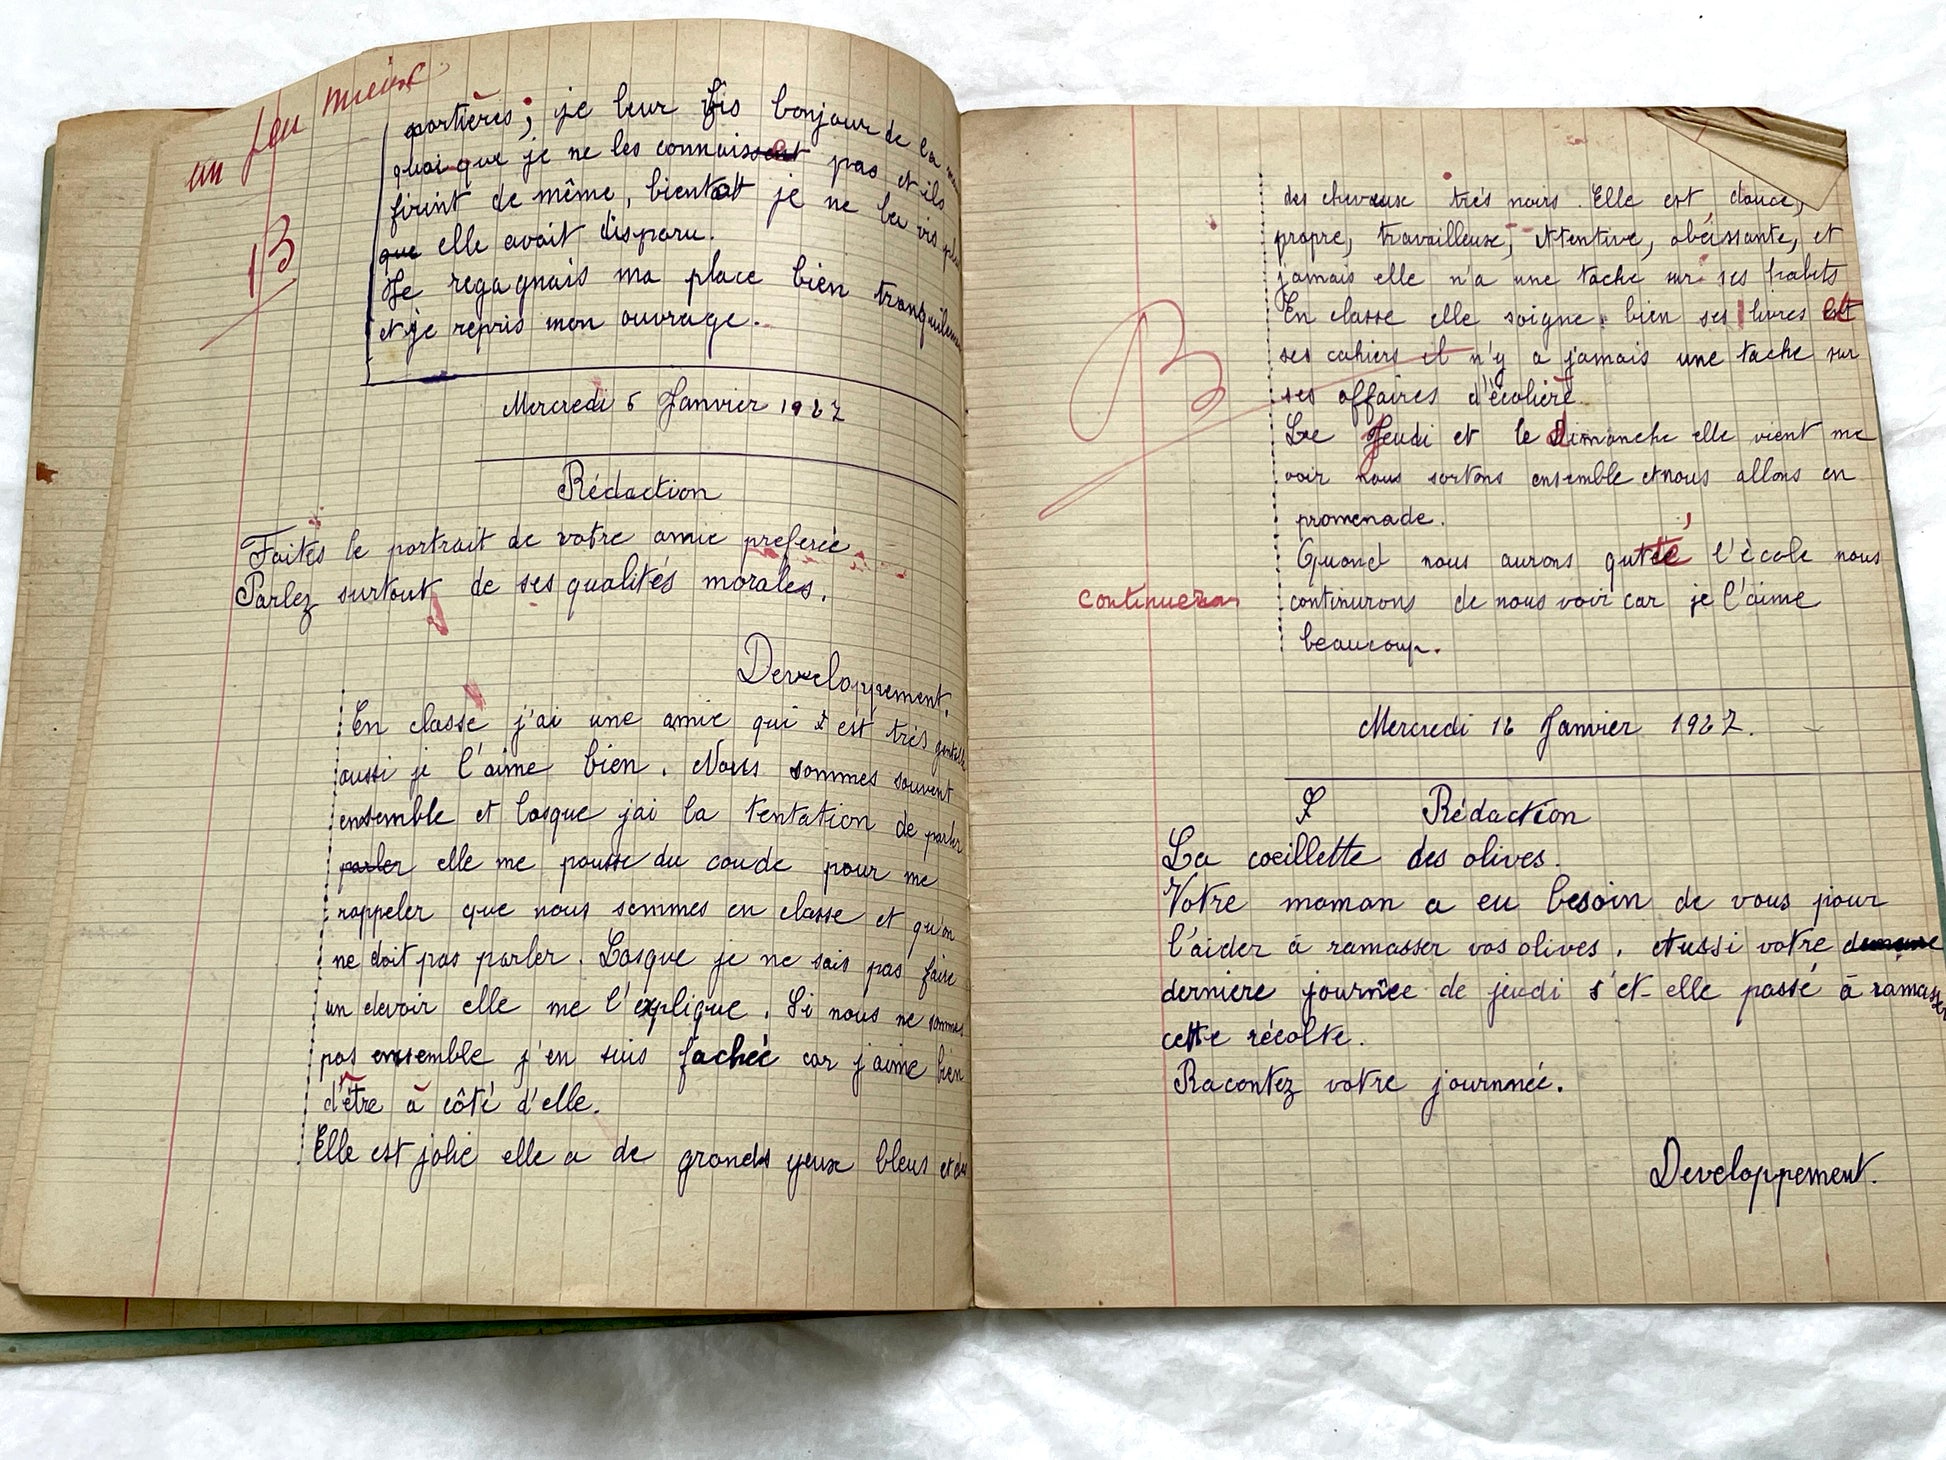 un peu mieux
B
portières; je leur fis bonjour de la
quoi que je ne les connaissait pas et ils
firint de même, bientôt je ne les vis plus
que elle avait disparu.
Je regagnais ma place bien tranquilement
et je repris mon ouvrage.
Mercredi 5 Janvier 1927
Rédaction
Faites le portrait de votre amie preferée.
Parlez surtout de ses qualités morales.
Developpement.
En classe j'ai une amie qui est trés gentille
aussi je l'aime bien. Nous sommes souvent
ensemble et losque jai la tentation de parler
parler elle me pousse du coude pour me
rappeler que nous sommes en classe et qu'on
ne doit pas parler. Losque je ne sais pas faire
un devoir elle me l'explique. Si nous ne sommes
pas ensemble j'en suis fachée car j'aime bien
d'être à côté d'elle.
Elle est jolie elle a de grands yeux bleus et des
des cheveux trés noirs. Elle est douce,
propre, travailleuse, Attentive, obéissante, et
jamais elle n'a une tache sur ses habits
En classe elle soigne bien ses livres et
ses cahiers il n'y a jamais une tache sur
ses affaires d'écolière
B
Le Jeudi et le dimanche elle vient me
voir nous sortons ensemble et nous allons en
promenade.
Quand nous aurons quttée l'école nous
continuerons
continurons de nous voir car je l'aime
beaucoup.
Mercredi 12 Janvier 1927.
Rédaction
La coeillette des olives.
Votre maman a eu besoin de vous pour
l'aider à ramasser vos olives. Aussi votre
derniere journée de jeudi s'et-elle passé à ramasser
cette récolte.
Racontez votre journneé.
Developpement.